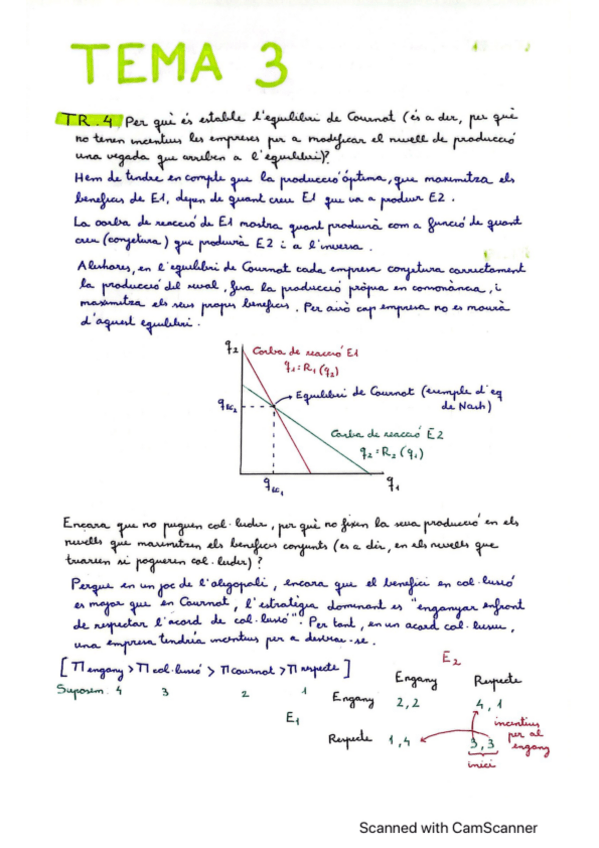 TEMA 3
TR.4 Per què és estable l'equilibri de Cournot (és a dir, per què
no tenen incentius les empreses per a modificar el nivell de producció
una vegada que arriben a l'equilibri)?
Hem de tindre en compte que la producció óptima, que maximitza els
beneficis de E1, depen de quant creu E1 que va a produir E2.
La corba de reacció de E1 mostra quant produirà com a funció de quant
creu (conjetura) que produirà E2 i a l'inversa.
Aleshores, en l'equilibri de Cournot cada empresa conjetura correctament
la producció del rival, fixa la producció pròpia en consonància, i
maximitza els seus propis beneficis. Per això cap empresa no es mourà
d'aquest equilibri.
q₂ Corba de reacció E1
q₁ = R₁(q₂)
Equilibri de Cournot (exemple d'eq
de Nash)
Corba de reacció E2
q₂ = R₂(q₁)
q₁
Encara que no puguen col·ludir, per què no fixen la seua producció en els
nivells que maximitzen els beneficis conjunts (es a dir, en els nivells que
triarien si pogueren col·ludir)?
Perque en un joc de l'oligopoli, encara que el benefici en col·lusió
es major que en Cournot, l'estratègia dominant es "enganyar enfront
de respectar l'acord de col·lusió". Per tant, en un acord col·lusiu,
una empresa tendria incentius per a desviar-se.
[Π engany > Π col·lusió > Π cournot > Π respecte]
Suposem. 4 3 2 1
E₂
Engany Respecte
E₁ Engany 2,2 4,1
Respecte 1,4 3,3
incentius
per al
engany
inici
Scanned with CamScanner